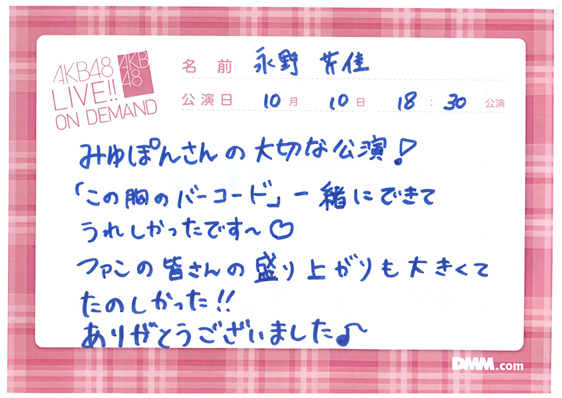 AKB48
LIVE!!
ON DEMAND
AKB
48
名前 永野 芹佳
公演日 10月 10日 18:30 公演
みゅぽんさんの大切な公演!
「この胸のバーコード」一緒にできて
うれしかったです〜♡
ファンの皆さんの盛り上がりも大きくて
たのしかった!!
ありがとうございました♪
DMM.com